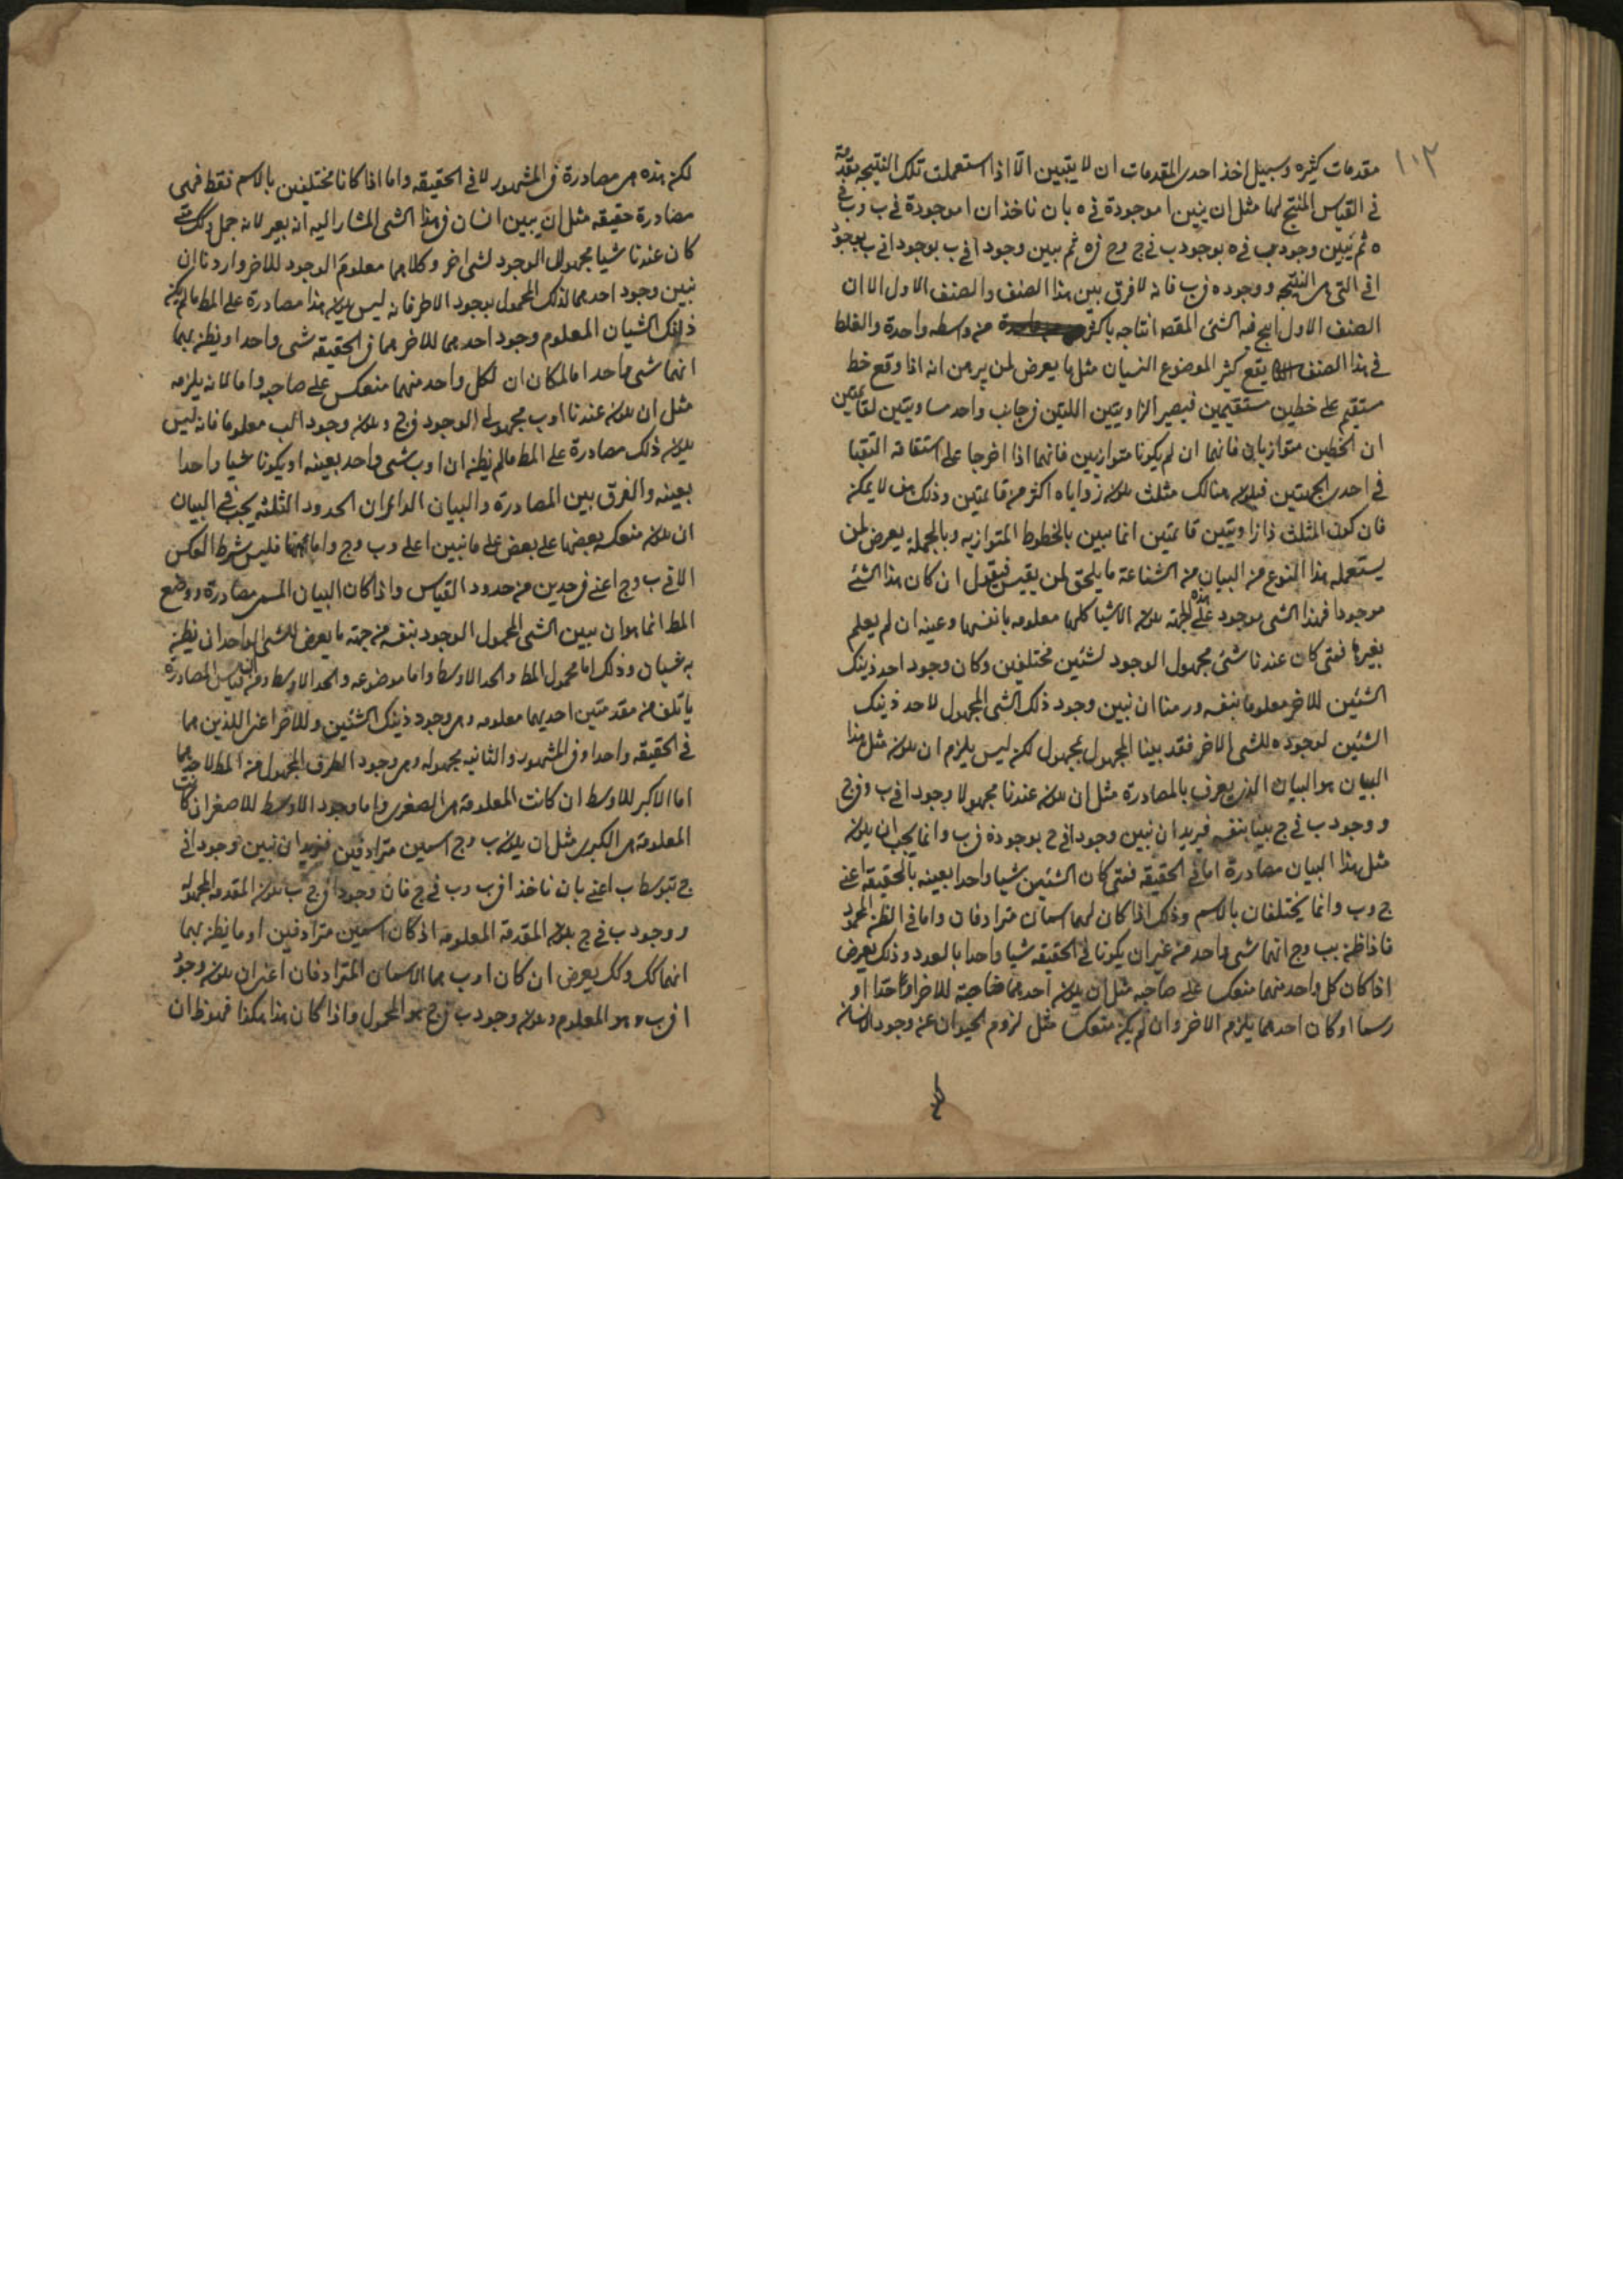 ١٠٢
مقدمات كثيره وسبيل اخذ احدى المقدمات ان لا يتبين الّا اذا استعملت تلك النتيجه مقدمة
في القياس المنتج لها مثل ان يبين ا موجودة في ه بان ناخذ ان ا موجودة في ب وب في
ه ثم يبين وجود ب في ه بوجود ب في ج وج في ه ثم يبين وجود ا في ب بوجود ا في ب بوجود
ا في التي هى النتيجه ووجود ه في ب فانه لا فرق بين هذا الصنف والصنف الاول الا ان
الصنف الاول انتج فيه الشئ المقصد انتاجه باكثر من واسطه واحدة والغلط
في هذا الصنف يقع كثير الموضوع النسيان مثل ما يعرض لمن يبرهن انه اذا وقع خط
مستقيم على خطين مستقيمين فيصير الزاويتين اللتين في جانب واحد مساويتين لقائمتين
ان الخطين متوازيان فانهما ان لم يكونا متوازيين فانهما اذا اخرجا على استقامة التقيا
في احدى الجهتين فيكون هنالك مثلث يكون زواياه اكثر من قائمتين وذلك لا يمكن
فان كون المثلث ذا زاويتين قائمتين انما يبين بالخطوط المتوازيه وبالجملة يعرض لمن
يستعمل هذا النوع من البيان من الشناعة ما يلحق لمن يقيس فيقول ان كان هذا الشئ
موجودا فهذا الشى موجود على هذه الجهة يكون الاشيا كلها معلومه بانفسها وعينه ان لم يعلم
بغيرها فمتى كان عندنا شئ مجهول الوجود لشئين مختلفين وكان وجود احد ذينك
الشئين للاخر معلوما بنفسه ورمنا ان نبين وجود ذلك الشى المجهول لاحد ذينك
الشئين لوجوده للشى الاخر فقد بينا المجهول بمجهول لكن ليس يلزم ان يكون مثل هذا
البيان هو البيان الذى يعرف بالمصادرة مثل ان يكون عندنا مجهولا وجود ا في ب وفي ج
ووجود ب في ج بينا بنفسه فنريد ان نبين وجود ا في ج بوجوده في ب وانما يجب ان يكون
مثل هذا البيان مصادرة اما في الحقيقه فمتى كان الشئين شيا واحدا بعينه بالحقيقه اعنى
ج وب وانما يختلفان بالاسم وذلك اذا كان لهما اسمان مترادفان واما في الظن المحمود
فاذا ظن بب وج انهما شى واحد من غير ان يكونا في الحقيقه شيا واحدا بالعدد وذلك يعرض
اذا كان كل واحد منهما منعكسا على صاحبه مثل ان يكون احدهما خاصة للاخر او حدا او
رسما او كان احدهما يلزم الاخر وان لم يكن منعكسا مثل لزوم الحيوان عن وجود الانسان
لكن هذه هى مصادرة في المشهور لا في الحقيقه واما اذا كانا مختلفين بالاسم فقط فهى
مصادرة حقيقه مثل ان يبين انسان في هذا الشى المشار اليه انه بعير لانه جمل وكك متى
كان عندنا شيا مجهول الوجود لشى اخر وكلاهما معلوم الوجود للاخر واردنا ان
نبين وجود احدهما لذلك المجهول بوجود الاخر فانه ليس يكون هذا مصادرة على المط ما لم يكن
ذانك الشيان المعلوم وجود احدهما للاخر هما في الحقيقه شى واحد او يظن بهما
انهما شى واحد اما لمكان ان كل واحد منهما منعكس على صاحبه واما لانه يلزمه
مثل ان يكون عندنا ا وب مجهولى الوجود في ج ويكون وجود ا لب معلوما فانه ليس
يكون ذلك مصادرة على المط ما لم يظن ان ا وب شى واحد بعينه او يكونا شيا واحدا
بعينه والفرق بين المصادرة والبيان الدائر ان الحدود الثلثه يجب في البيان
ان يكون منعكسه بعضها على بعض على ما نبين اعلى وب وج واما هنا فليس شرط العكس
الا في ب وج اعنى في حدين من حدود القياس واذا كان البيان المسمى مصادرة ووضع
المط انما هو ان يبين الشى المجهول الوجود بنفسه من جهة ما يعرض للشى الواحد ان يظن
به شيان وذلك اما محمول المط والحد الاوسط واما موضوعه والحد الاوسط فقياس المصادرة
ياتلف من مقدمتين احديهما معلومه وهى وجود ذينك الشئين وللاخر اعنى اللذين هما
في الحقيقه واحد او في المشهور والثانيه مجهوله وهى وجود الطرف المجهول من المط لاحدهما
اما الاكبر للاوسط ان كانت المعلومة هى الصغرى واما وجود الاوسط للاصغر ان كانت
المعلومة هى الكبرى مثل ان يكون ب وج اسمين مترادفين فنريد ان نبين وجود ا في
ج بتوسط ب اعنى بان ناخذ ا في ب وب في ج فان وجود ا في ج ب يكون المقدمه المجهولة
ووجود ب في ج يكون المقدمة المعلومه اذ كان اسمين مترادفين او ما يظن بهما
انهما كك وكك يعرض ان كان ا وب هما الاسمان المترادفان اعنى ان يكون وجود
ا في ب هو المعلوم ويكون وجود ب في ج هو المجهول واذا كان هذا هكذا فهو ظ ان